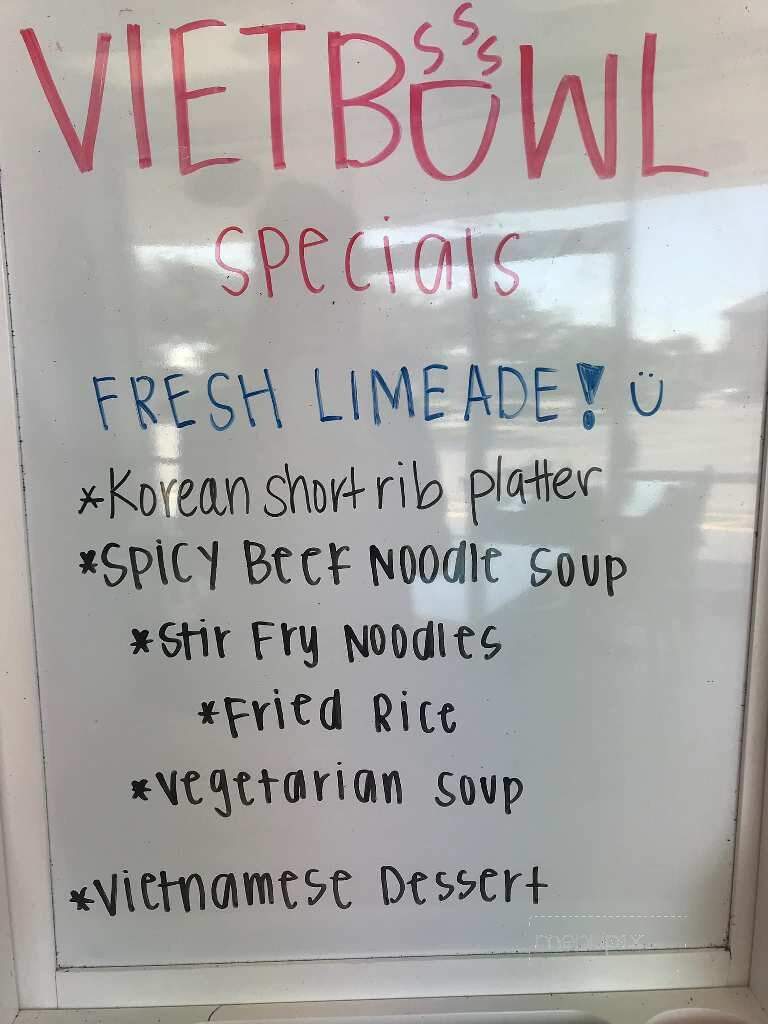 VIETBOWL
specials
FRESH LIMEADE!
*Korean short rib platter
*SPICY BEEF NOODLE SOUP
*Stir Fry NOODLES
*Fried Rice
*vegetarian soup
*Vietnamese Dessert
menupix